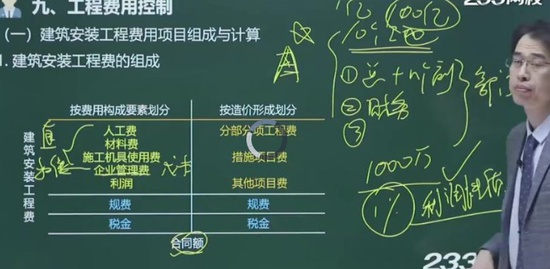 九、工程费用控制
(一) 建筑安装工程费用项目组成与计算
1. 建筑安装工程费的组成
按费用构成要素划分 按造价形成划分
建筑安装工程费
人工费 分部分项工程费
材料费
施工机具使用费 措施项目费
企业管理费
利润 其他项目费
规费 规费
税金 税金
合同额
直
100亿
①总+n个副
②财务
③
1000万
1% 利润
233网校
233